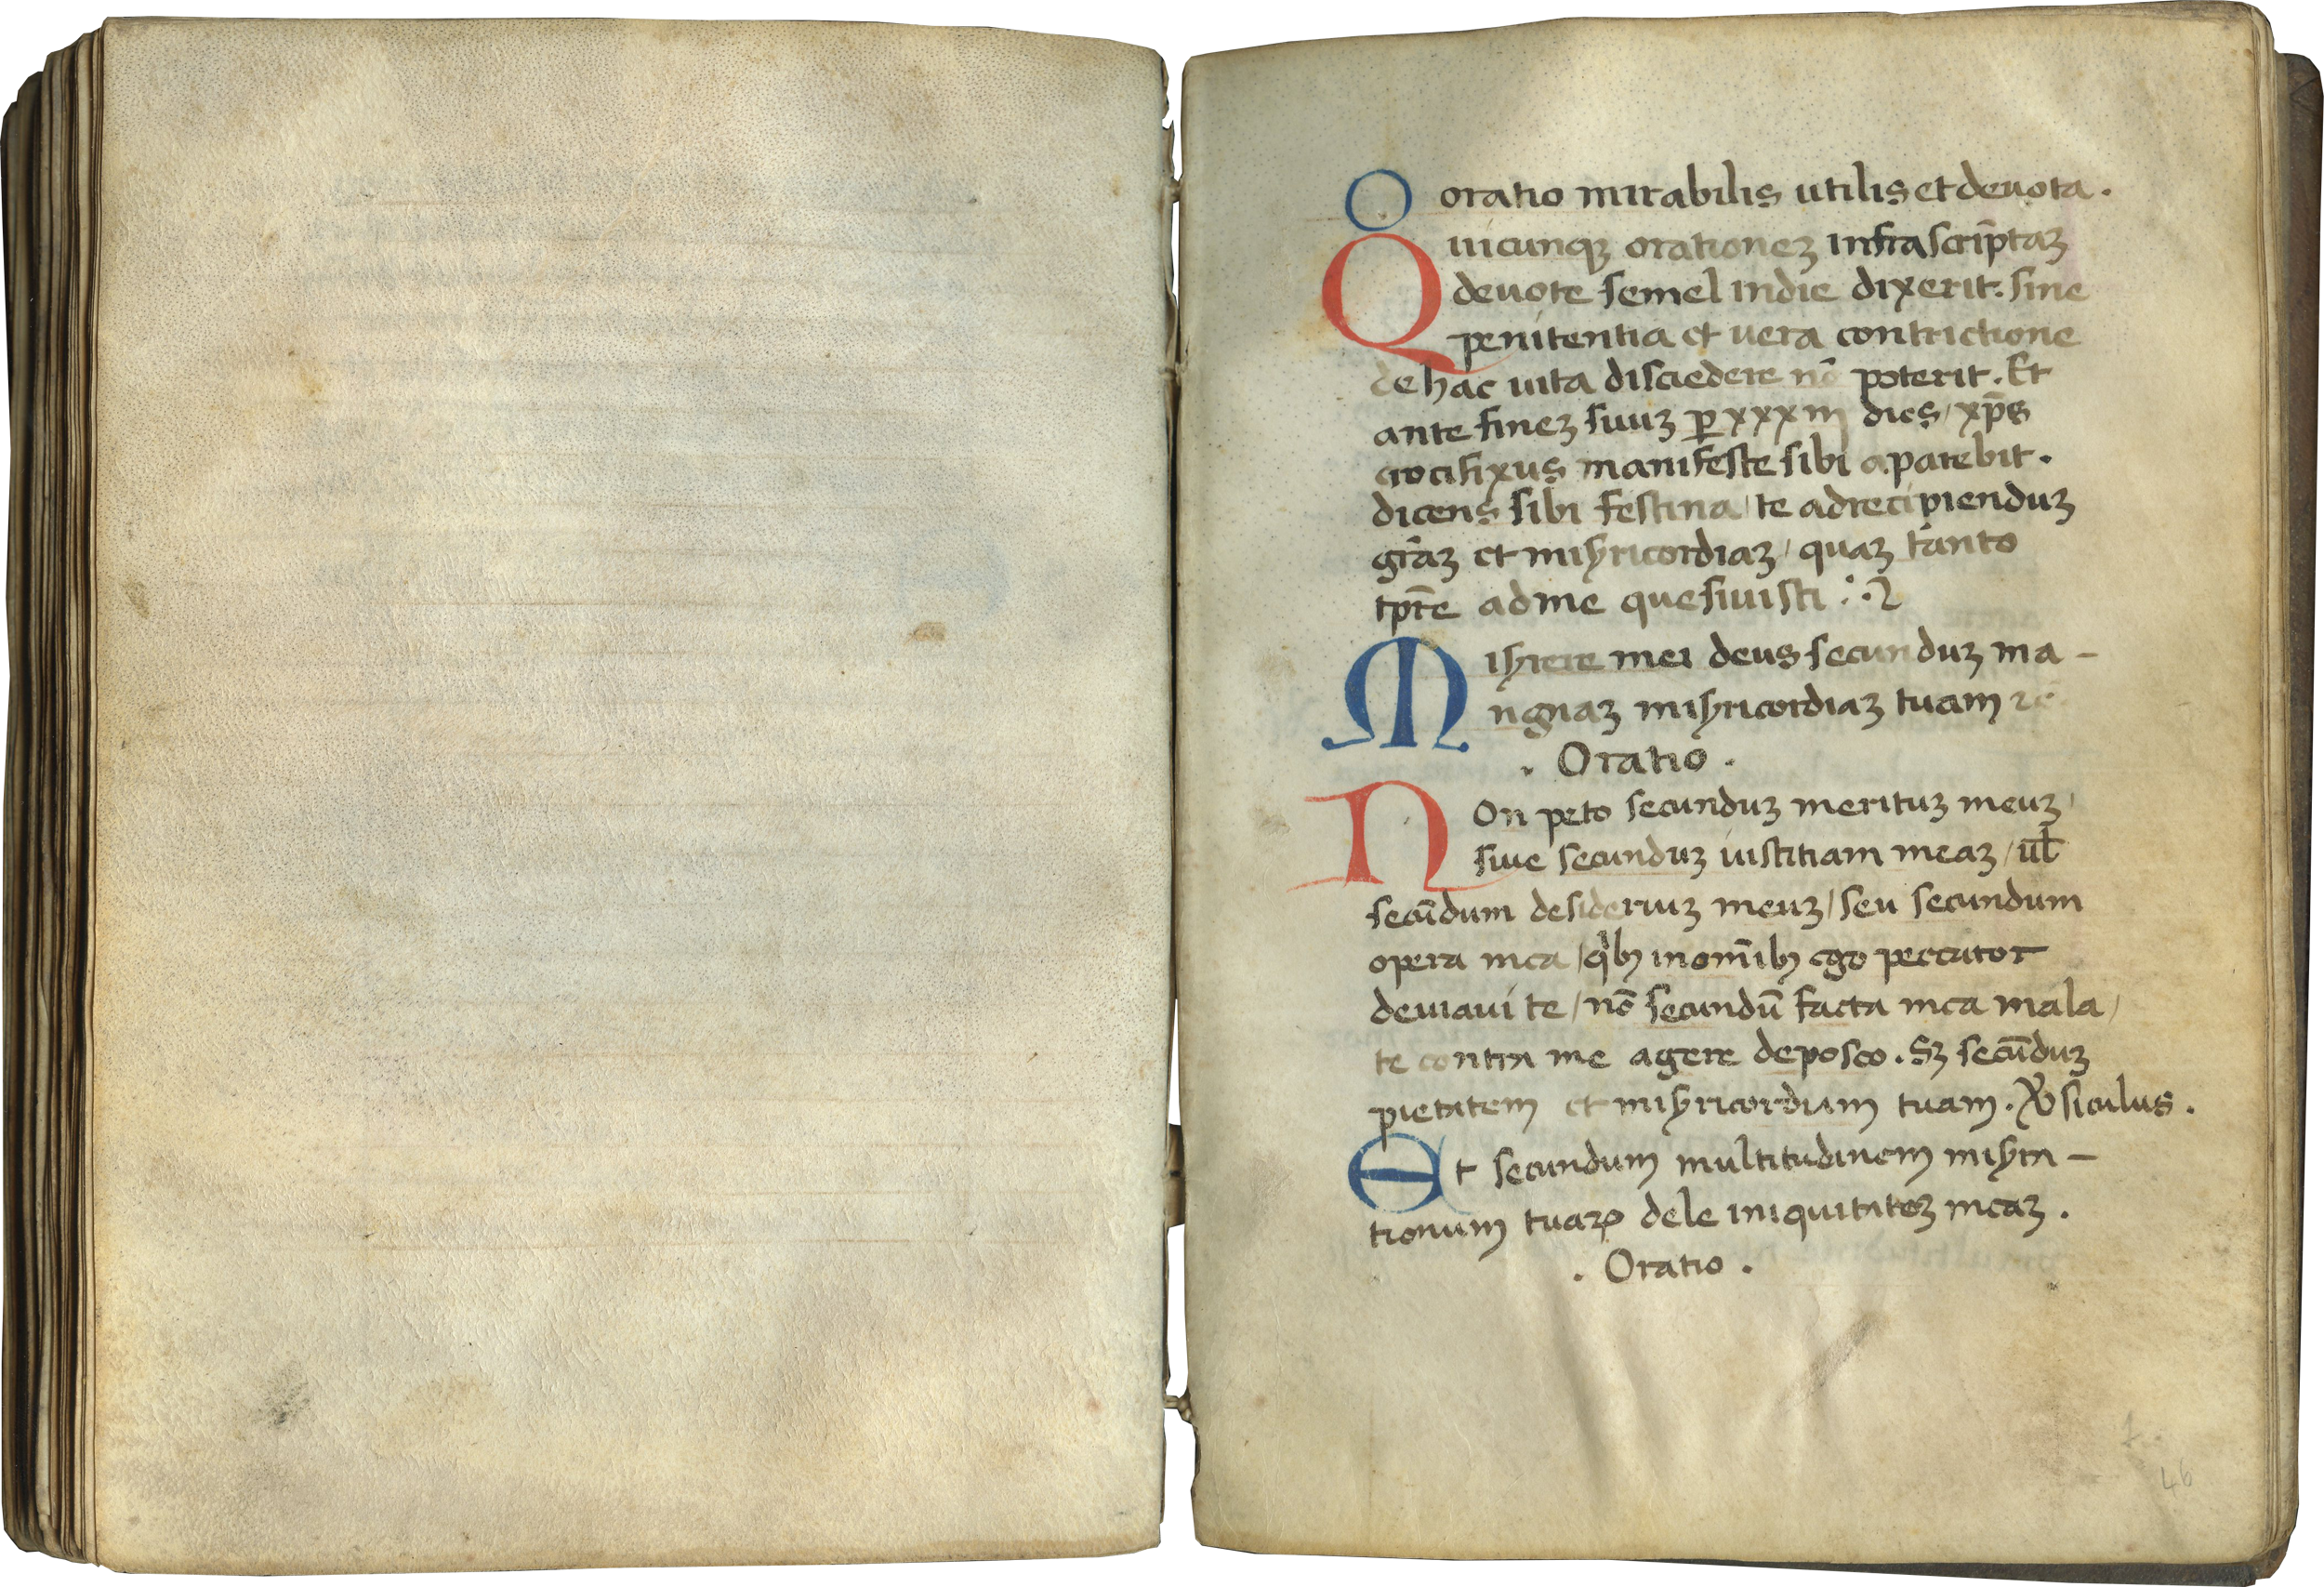 O oratio mirabilis utilis et deuota.
Quicunqꝫ orationeꝫ infrascrīptaꝫ
deuote semel indie dixerit. sine
penitentia et uera contrictione
de hac uita disciedere nō poterit. Et
ante fineꝫ suuꝫ ꝑ xxxiii dies / xp̄s
crocifixus manifeste sibi aparebit.
dicens sibi festina / te adrecipienduꝫ
gr̄aꝫ et misꝫricordiaꝫ / quaꝫ tanto
tpr̄e ad me quesiuisti
Misꝫrere mei deus secunduꝫ ma-
ngnaꝫ misꝫricordiaꝫ tuam
. Oratio .
NOn peto secunduꝫ merituꝫ meuꝫ /
siue secunduꝫ iustitiam meaꝫ / ul̄
secūdum desideriuꝫ meuꝫ / seu secundum
opera mea / qͥbꝫ inom̄ibꝫ ego peccator
deuiaui te / nō secundū facta mea mala /
te contra me agere deposco. Sꝫ secūduꝫ
pietatem et misꝫricordiam tuam. siculus.
Et secundum multitudinem misꝫra-
tionum tuaꝝ dele iniquitateꝫ meaꝫ.
. Oratio .
46